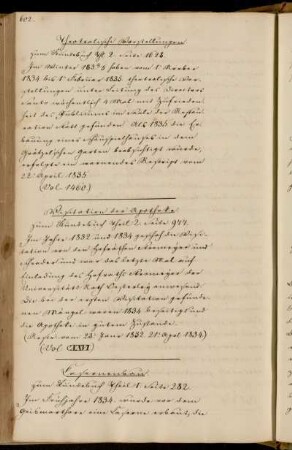 602.
Theatralische Vorstellungen
zum Kundebuch Th. 2. Seite 1628
Im Winter 1834/5 haben vom 1t October
1834 bis 1t Februar 1835 theatralische Vor-
stellungen unter Leitung des Directors
wöchentlich 4 Mal mit Zufrieden
heit des Publicums im Saale der Restau
ration statt gefunden. Als 1835 die Er
bauung eines Schauspielhauses in dem
Garten beabsichtigt wurde,
erfolgte ein Rescript vom
22 April 1835
(Vol. 1460)
Visitation der Apotheke
zum Kundebuch Theil 2. Seite 977.
Im Jahre 1832 und 1834 geschah die Visi
tation von den Hofräthen Stromeyer und
und war das letzte Mal auf
Einladung des Hofraths Stromeyer der
Universitäts Rath Oesterley anwesend.
Die bei der ersten Visitation gefunde
nen Mängel waren 1834 beseitigt und
die Apotheke in gutem Zustande.
(Rescr. vom 23 Juny 1832. 21 Apr. 1834)
(Vol. LXII)
Casernenbau
zum Kundebuch Theil 1. Seite 282.
Im Frühjahre 1834. wurde vor dem
Geismarthore eine Caserne erbaut, die